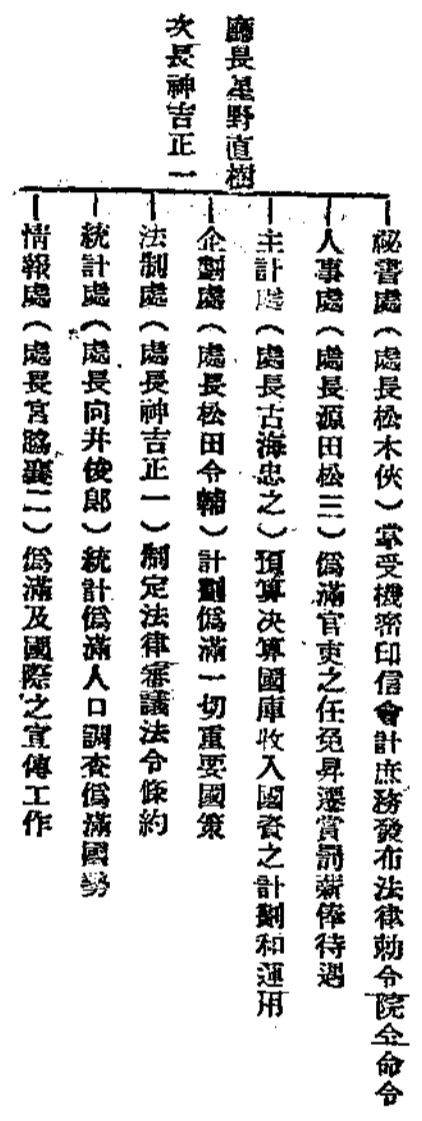 廳長星野直樹
次長神吉正一
祕書處（處長松木俠）掌受機密印信會計庶務發布法律勅令院令命令
人事處（處長源田松三）僞滿官吏之任免昇遷賞罰薪俸待遇
主計處（處長古海忠之）預算決算國庫收入國資之計劃和運用
企劃處（處長松田令輔）計劃僞滿一切重要國策
法制處（處長神吉正一）制定法律審議法令條約
統計處（處長向井俊郎）統計僞滿人口調查僞滿國勢
情報處（處長宮脇襄二）僞滿及國際之宣傳工作